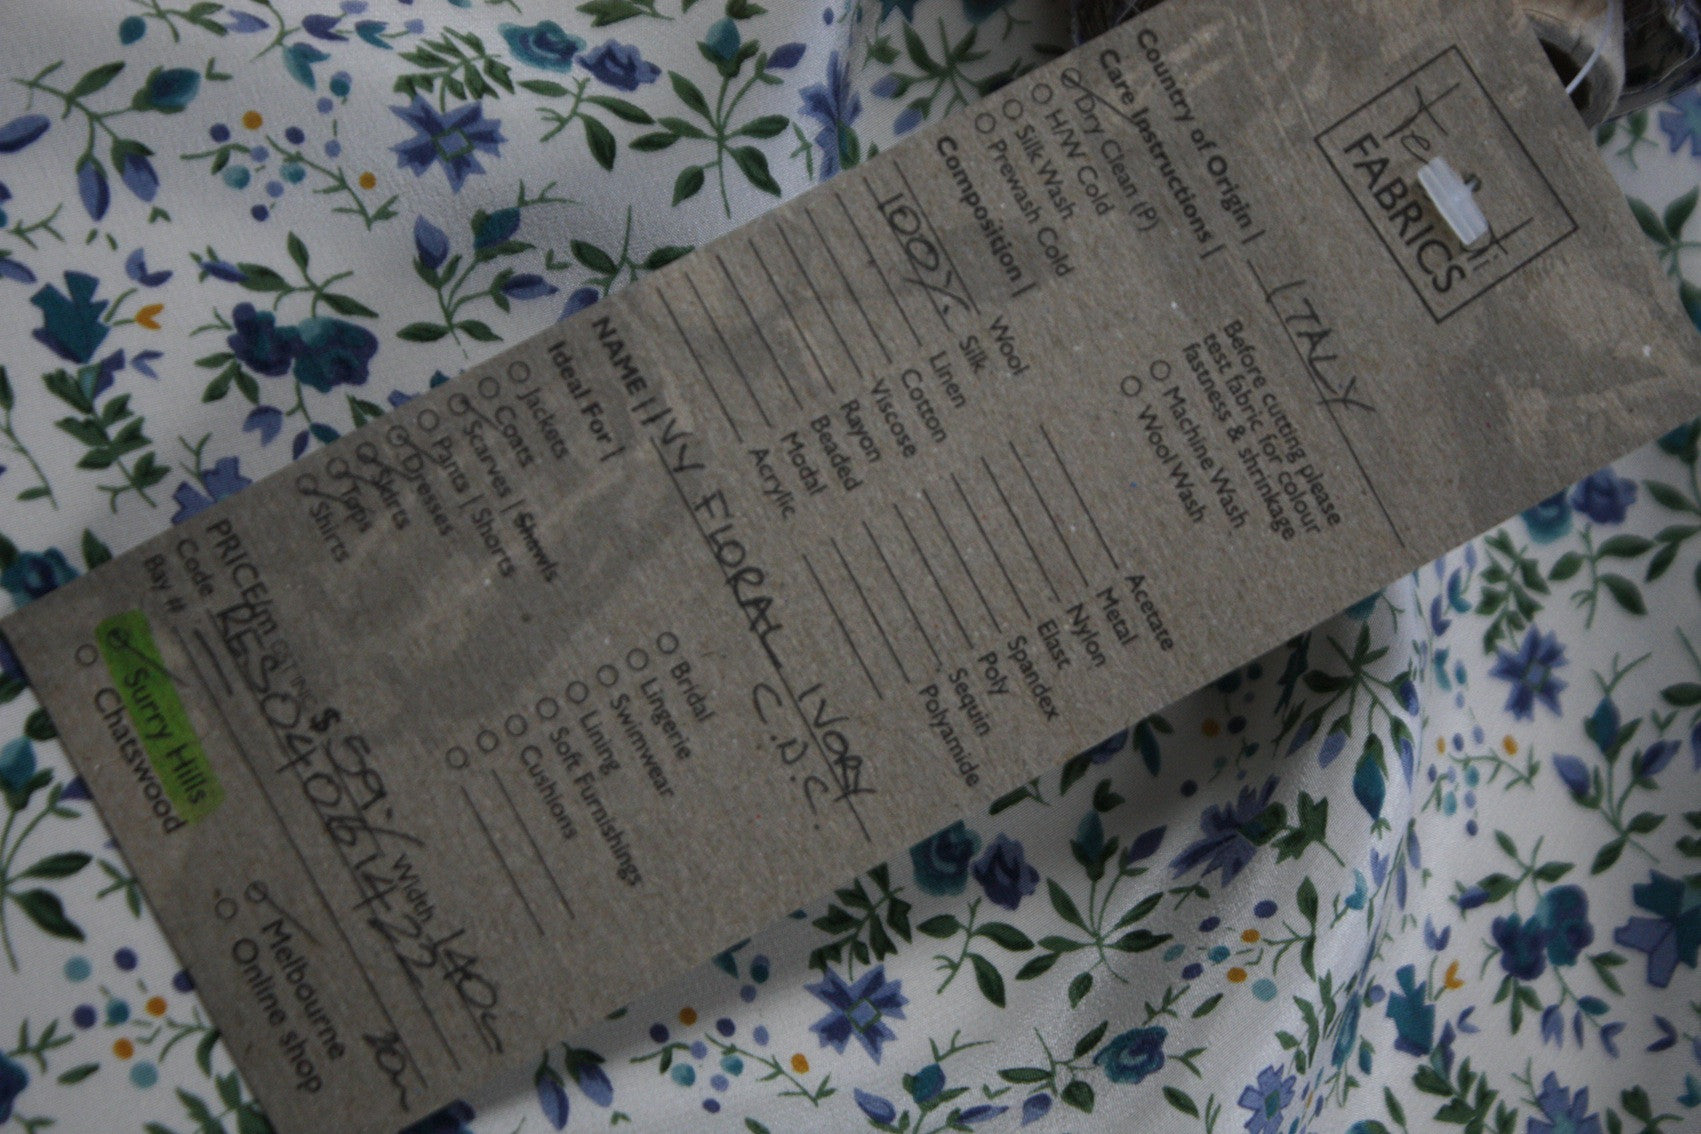 Te Ati
FABRICS
Country of Origin | ITALY
Care Instructions |
Dry Clean (P)
H/W Cold
Silk Wash
Prewash Cold
Before cutting please
test fabric for colour
fastness & shrinkage
Machine Wash
Wool Wash
Composition |
Wool
100% Silk
Linen
Cotton
Viscose
Rayon
Beaded
Modal
Acrylic
Acetate
Metal
Nylon
Elast
Spandex
Poly
Sequin
Polyamide
NAME | IVY FLORAL IVORY
C.D.C.
Ideal For |
Jackets
Coats
Scarves | Shawls
Pants | Shorts
Dresses
Skirts
Tops
Shirts
Bridal
Lingerie
Swimwear
Lining
Soft Furnishings
Cushions
PRICE/m $59.- Width 140c
Code RES04061422
Bay #
Surry Hills
Chatswood
Melbourne
Online shop